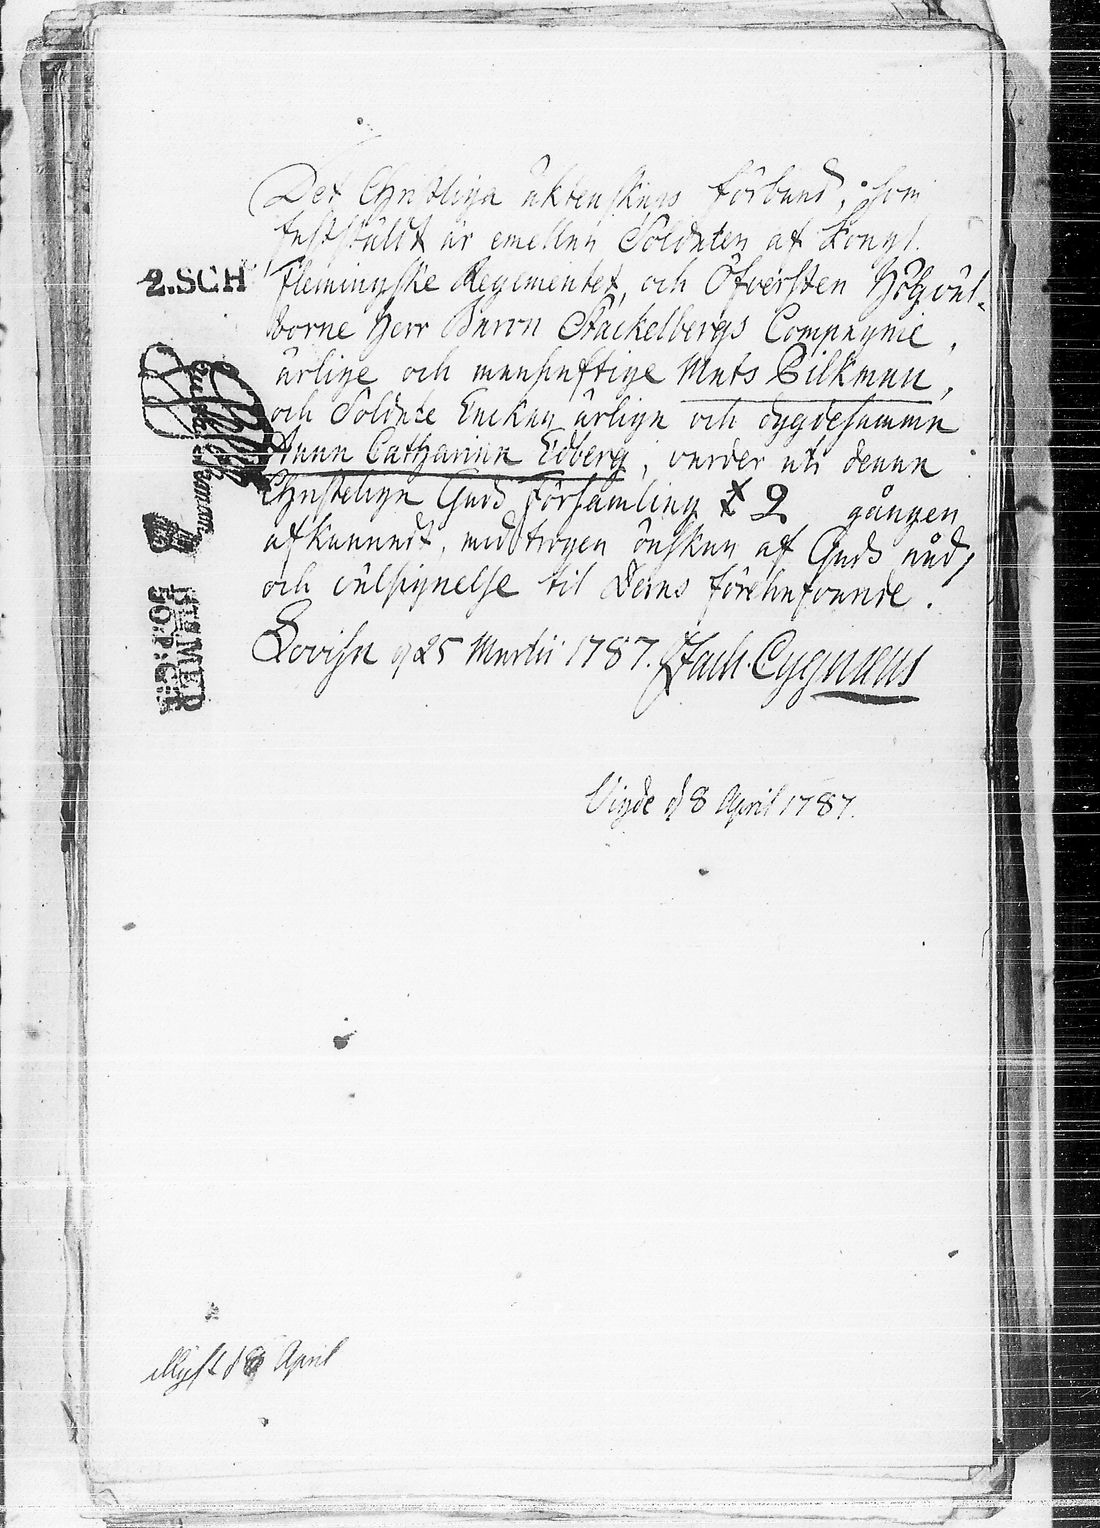 Det Christliga äktenskaps förbund, som
fastställt är emellan Soldaten af Kongl.
Flemingske Regementet, och Öfversten Högväl-
borne Herr Baron Stackelbergs Compagnie,
ärlige och manhaftige Mats Silkman,
och Soldate Enckan ärliga och dygdesamma
Anna Catharina Edberg, varder uti denna
Christeliga Guds Församling 2 gången
afkunnadt, med trogen önskan af Guds nåd,
och välsignelse til Deras förehafvande.
Lovisa d 25 Martii 1787. Zach. Cygnæus
Vigde d 8 April 1787.
2.SCH
d 8 April